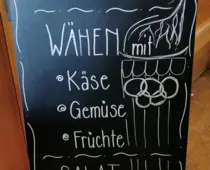 WÄHEN mit
Käse
Gemüse
Früchte
SALAT